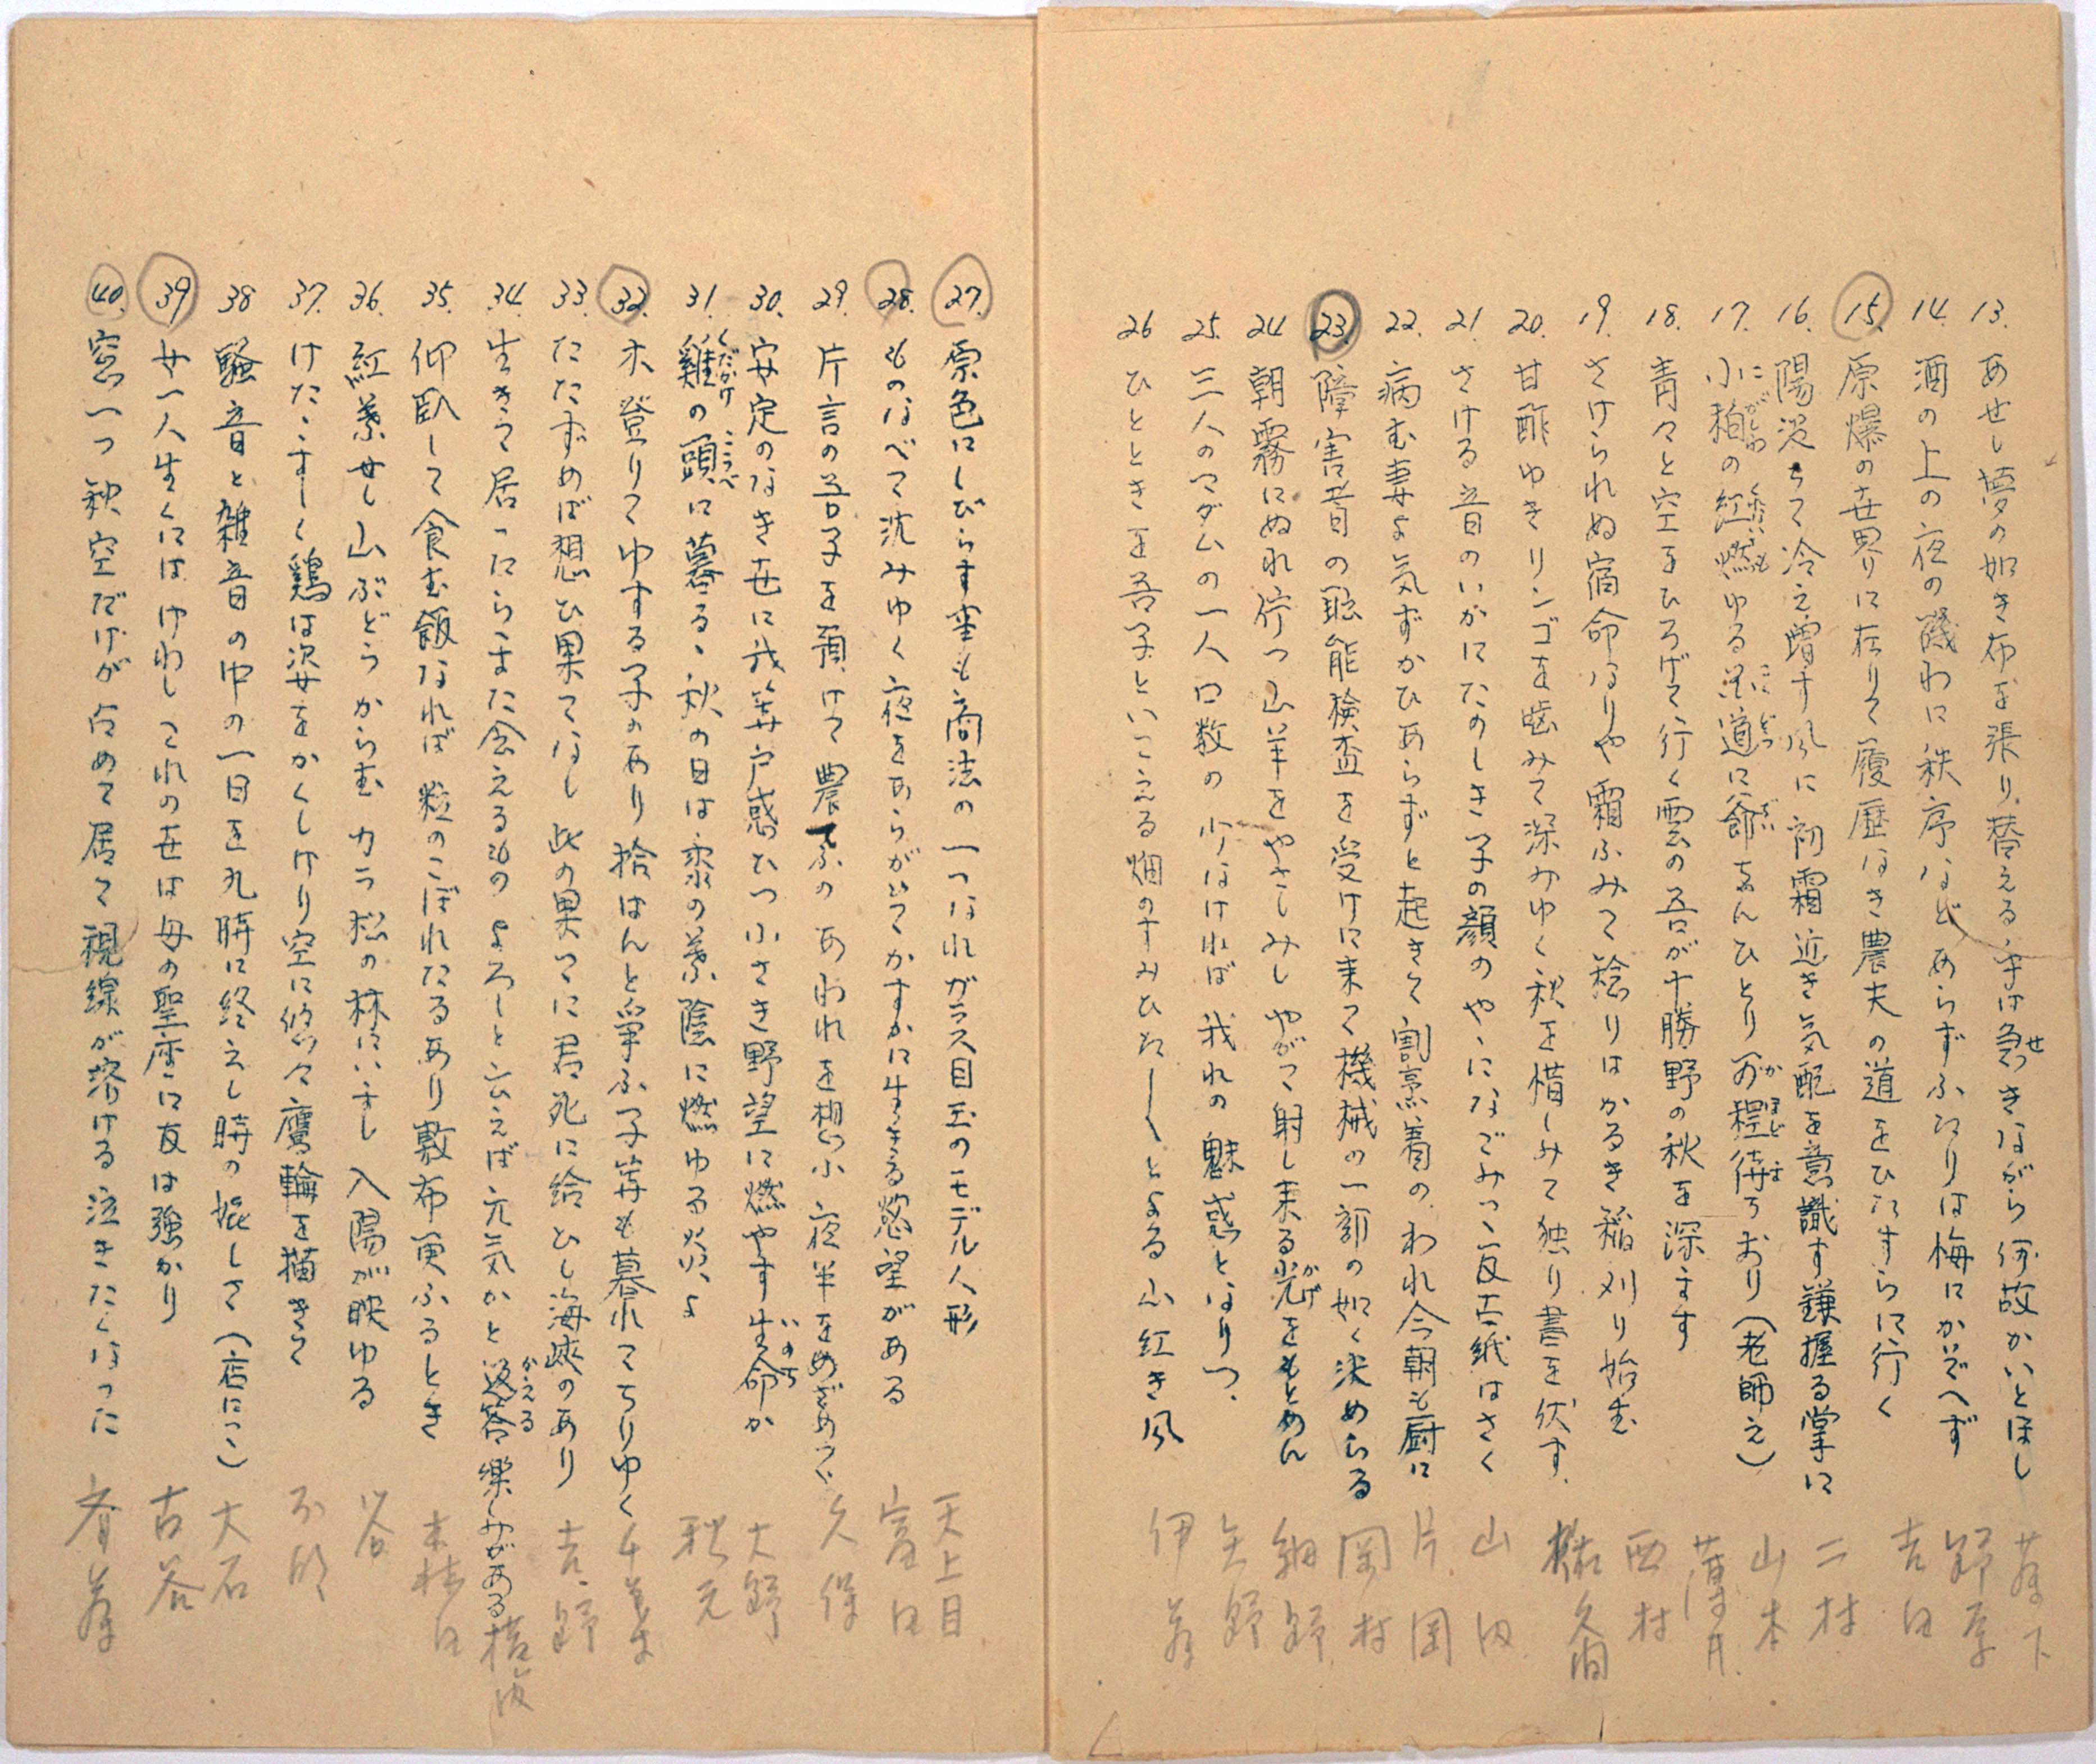 13. あせし夢の如き布を張り替える手は急きながら何故かいとほし 藤下
14. 酒の上の夜の磯わに秩序などあらずふたりは悔にかぞへず 野原
15. 原爆の世界に在りて履歴なき農夫の道をひたすらに行く 吉田
16. 陽没ちて冷え増す風に初霜近き気配を意識す鎌握る掌に 二村
17. 小柏の紅燃ゆる道に爺さんひとり可程待ちおり（老師え） 山本
18. 青々と空をひろげて行く雲の吾が十勝野の秋を深ます
19. さけられぬ宿命なりや霜ふみて稔りはかるき稲刈り始む 西村
20. 甘酢ゆきリンゴを噛みて深みゆく秋を惜しみて独り書を伏す。
21. さける音のいかにたのしき子の顔のやゝになごみつゝ反古紙はさく 山内
22. 病む妻よ気ずかひあらずと起きて割烹着のわれ今朝も厨に 片岡
23. 障害者の聴能検査を受けに来て機械の一部の如く決めらる 岡村
24 朝霧にぬれ佇つ山羊をやさしみしやがて射し来る光をもとめん 細野
25. 三人のマダムの一人口数の少なければ我れの魅惑となりつゝ 矢野
26 ひとときを吾子といこえる畑のすみひたしくとよる山紅き風 伊藤
27. 原色にしびらす率も商法の一つなれガラス目玉のモデル人形 天上目
28. ものなべて沈みゆく夜をあらがいてかすかに生きる慾望がある 富田
29. 片言の吾子を預けて農てふのあわれを想ふ小夜半をめざめつゝ 久保
30. 安定のなき世に我等戸惑ひつ小さき野望に燃やす生命か 大野
31. 雞の頭に暮るゝ秋の日は黍の葉陰に燃ゆる炎よ 秋元
32. 木登りてゆする子のあり拾はんと争ふ子等も暮れてちりゆく
33. たたずめば想ひ果てなし此の果てに君死に給ひし海峡のあり 吉野
34. 生きて居ったらまた会えるものよろしと云えば元気かと返答楽しみがある
35. 仰臥して食む飯なれば粒のこぼれたるあり敷布更ふるとき 末枝田
36. 紅葉せし山ぶどうからむカラ松の林にいまし入陽が映ゆる 谷
37. けたゝましく鶏は姿をかくしけり空に悠々鷹輪を描きて 不明
38 騒音と雑音の中の一日を九時に終えし時の侘しさ（店にて） 大石
39 女一人生くにはけわしこれの世は母の聖座に友は強かり 古谷
40. 窓一つ秋空だけが占めて居て視線が溶ける泣きたくなった 斉藤